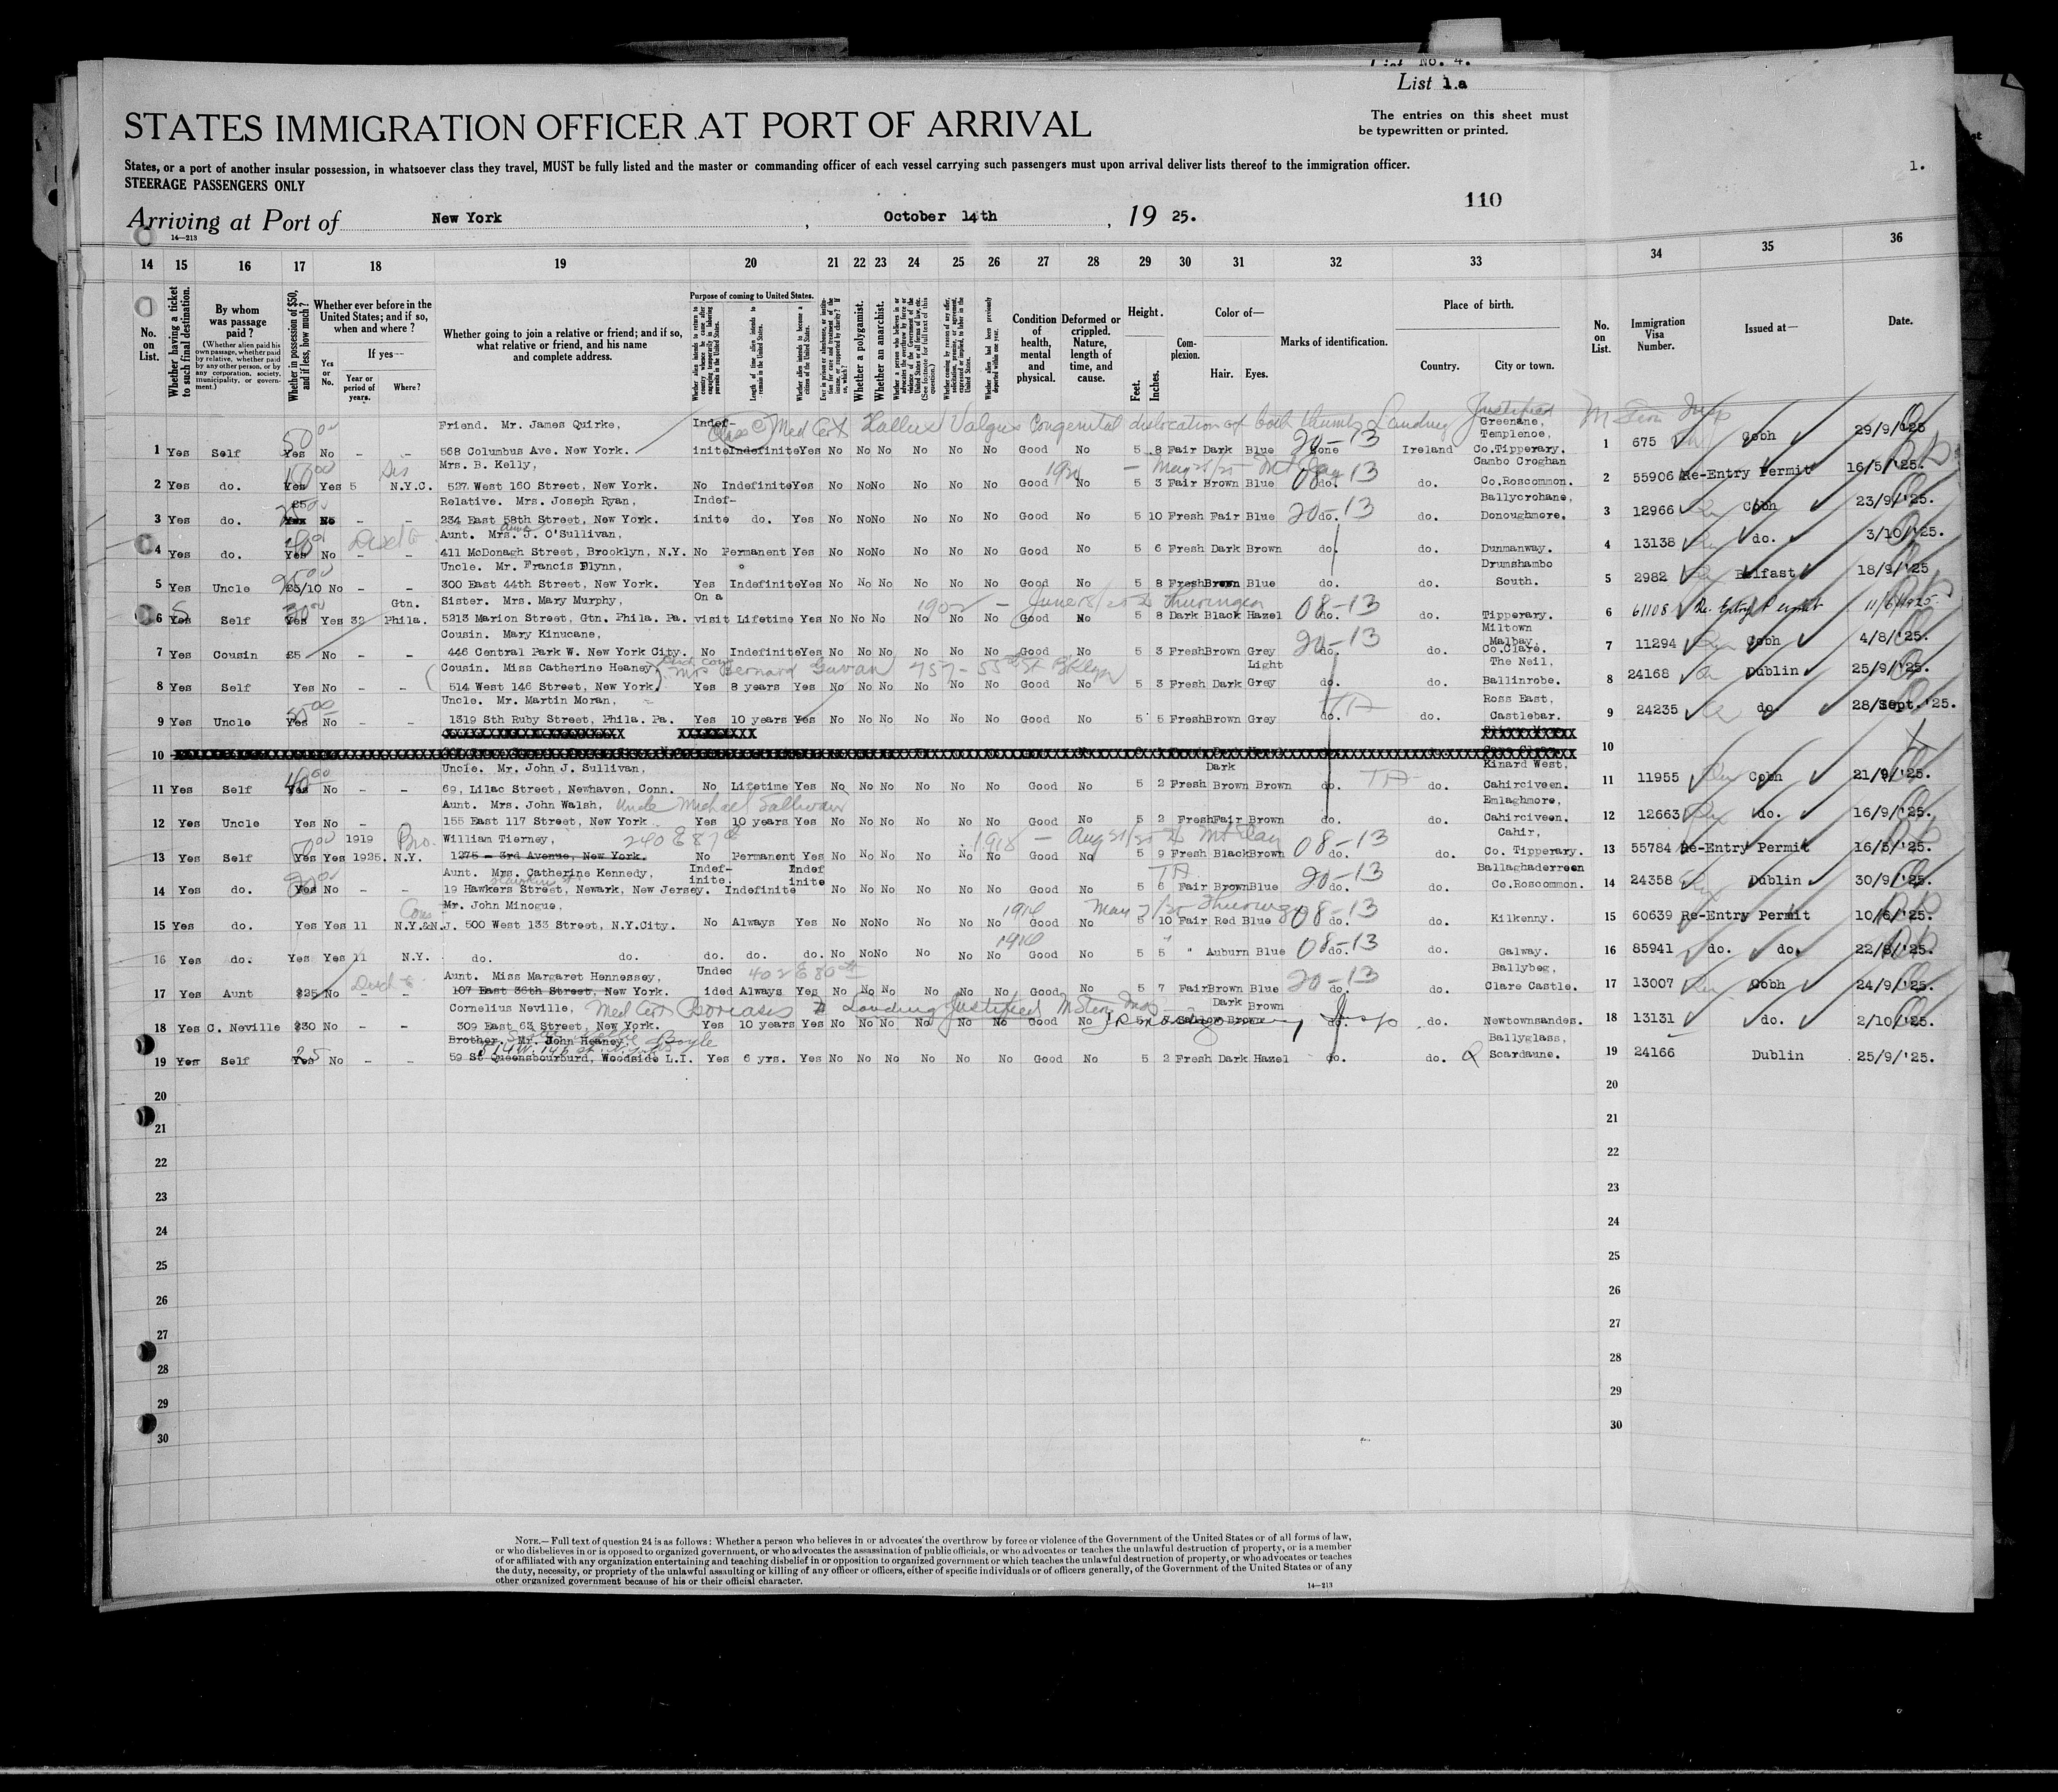 List No. 4.
List 1.a
STATES IMMIGRATION OFFICER AT PORT OF ARRIVAL
The entries on this sheet must
be typewritten or printed.
States, or a port of another insular possession, in whatsoever class they travel, MUST be fully listed and the master or commanding officer of each vessel carrying such passengers must upon arrival deliver lists thereof to the immigration officer.
STEERAGE PASSENGERS ONLY
1.
110
Arriving at Port of New York, October 14th, 19 25.
14—213
14 15 16 17 18 19 20 21 22 23 24 25 26 27 28 29 30 31 32 33 34 35 36
No. on List.
Whether having a ticket to such final destination.
By whom was passage paid?
(Whether alien paid his own passage, whether paid by relative, whether paid by any other person, or by any corporation, society, municipality, or government.)
Whether in possession of $50, and if less, how much?
Whether ever before in the United States; and if so, when and where?
Yes or No.
If yes—
Year or period of years.
Where?
Whether going to join a relative or friend; and if so, what relative or friend, and his name and complete address.
Purpose of coming to United States.
Length of time alien intends to remain in the United States.
Whether alien intends to become a citizen of the United States.
Whether a polygamist.
Whether an anarchist.
Condition of health, mental and physical.
Deformed or crippled. Nature, length of time, and cause.
Height.
Feet.
Inches.
Complexion.
Color of—
Hair.
Eyes.
Marks of identification.
Place of birth.
Country.
City or town.
No. on List.
Immigration Visa Number.
Issued at—
Date.
Friend. Mr. James Quirke, Indef- Class C Med Cert Hallux Valgus Congenital dislocation of both thumbs Landing Justified M Stern Insp Greenane, Templenoe,
1 Yes Self Yes 50 00 No - - 568 Columbus Ave. New York. inite Indefinite Yes No No No No No No Good No 5 8 Fair Dark Blue 20-13 None Ireland Co.Tipperary. 1 675 Cobh 29/9/'25
Mrs. B. Kelly, Cambo Croghan
2 Yes do. Yes Yes 5 N.Y.C. 527 West 160 Street, New York. No Indefinite Yes No No No No No No Good No 5 3 Fair Brown Blue 08-13 do. do. Co.Roscommon. 2 55906 Re-Entry Permit 16/5/'25.
Relative. Mrs. Joseph Ryan, Indef- Ballycrohane,
3 Yes do. £5 No - - 234 East 58th Street, New York. inite do. Yes No No No No No No Good No 5 10 Fresh Fair Blue 20-13 do. do. Donoughmore. 3 12966 Cobh 23/9/'25.
Aunt. Mrs. J. O'Sullivan,
4 Yes do. Yes No - - 411 McDonagh Street, Brooklyn, N.Y. No Permanent Yes No No No No No No Good No 5 6 Fresh Dark Brown do. do. Dunmanway. 4 13138 do. 3/10/'25.
Uncle. Mr. Francis Flynn, Drumshambo
5 Yes Uncle £5/10 No - - 300 East 44th Street, New York. Yes Indefinite Yes No No No No No No Good No 5 8 Fresh Brown Blue do. do. South. 5 2982 Belfast 18/9/'25
Gtn. Sister. Mrs. Mary Murphy, On a 1902 - June 18/25
6 Yes Self Yes 30 00 Yes 32 Phila. 5213 Marion Street, Gtn. Phila. Pa. visit Lifetime Yes No No No No No No Good No 5 8 Dark Black Hazel 08-13 do. do. Tipperary. 6 61108 Re Entry Permit 11/6/1925.
Cousin. Mary Kinucane, Miltown Malbay,
7 Yes Cousin £5 No - - 446 Central Park W. New York City. No Indefinite Yes No No No No No No Good No 5 3 Fresh Brown Grey 20-13 do. do. Co.Clare. 7 11294 Cobh 4/8/'25.
Cousin. Miss Catherine Heaney, Mrs Bernard Gavan 757 - 55th St Bklyn Light The Neil,
8 Yes Self Yes No - - 514 West 146 Street, New York. Yes 8 years Yes No No No No No No Good No 5 3 Fresh Dark Grey do. do. Ballinrobe. 8 24168 Dublin 25/9/'25.
Uncle. Mr. Martin Moran, Ross East,
9 Yes Uncle Yes No - - 1319 Sth Ruby Street, Phila. Pa. Yes 10 years Yes No No No No No No Good No 5 5 Fresh Brown Grey TA do. do. Castlebar. 9 24235 do. 28/Sept.'25.
10 10
Uncle. Mr. John J. Sullivan, Dark Kinard West,
11 Yes Self Yes 40 00 No - - 69, Lilac Street, Newhaven, Conn. No Lifetime Yes No No No No No No Good No 5 2 Fresh Brown Brown do. TA do. Cahirciveen. 11 11955 Cobh 21/9/'25.
Aunt. Mrs. John Walsh, Uncle Michael Sullivan Emlaghmore,
12 Yes Uncle Yes No - - 155 East 117 Street, New York Yes 10 years Yes No No No No No No Good No 5 2 Fresh Fair Brown do. do. Cahirciveen. 12 12663 do. 16/9/'25.
1919 Bro. William Tierney, 240 E 87th 1918 - Aug 21/25 Mt Clay Cahir,
13 Yes Self Yes Yes 1925. N.Y. 1275 - 3rd Avenue, New York. No Permanent Yes No No No No No No Good No 5 9 Fresh Black Brown 08-13 do. do. Co. Tipperary. 13 55784 Re-Entry Permit 16/5/'25.
Aunt. Mrs. Catherine Kennedy, Indef- Indef TA Ballaghaderreen
14 Yes do. Yes No - - 19 Hawkers Street, Newark, New Jersey. inite. Indefinite inite No No No No No No Good No 5 6 Fair Brown Blue 20-13 do. do. Co.Roscommon. 14 24358 Dublin 30/9/'25.
Mr. John Minogue, 1914 May 7/25
15 Yes do. Yes Yes 11 N.Y.&N.J. 500 West 133 Street, N.Y.City. No Always Yes No No No No No No Good No 5 10 Fair Red Blue 08-13 do. do. Kilkenny. 15 60639 Re-Entry Permit 10/6/'25.
16 Yes do. Yes Yes 11 N.Y. do. do. do. do. do. No No No No No No 1914 Good No 5 5 " Auburn Blue 08-13 do. do. Galway. 16 85941 do. do. 22/8/'25.
Aunt. Miss Margaret Hennessey, Undec 402 E 80th Ballybeg,
17 Yes Aunt $25 No - 107 East 36th Street, New York. ided Always Yes No No No No No No Good No 5 7 Fair Brown Blue 20-13 do. do. Clare Castle. 17 13007 Cobh 24/9/'25.
Cornelius Neville, Med Cert Psoriasis Landing Justified M Stern Insp Dark Brown
18 Yes C. Neville $30 No - - 309 East 63 Street, New York. Yes 10 years Yes No No No No No No Good No 5 Sallow Brown do. do. Newtownsandes. 18 13131 do. 2/10/'25.
Brother. Mr. John Heaney, Boyle 514 W. 146 St. Ballyglass,
19 Yes Self Yes 25 No - - 59 St Queensbourburd, Woodside L.I. Yes 6 yrs. Yes No No No No No No Good No 5 2 Fresh Dark Hazel do. do. Scardaune. 19 24166 Dublin 25/9/'25.
20 20
21 21
22 22
23 23
24 24
25 25
26 26
27 27
28 28
29 29
30 30
NOTE.—Full text of question 24 is as follows: Whether a person who believes in or advocates the overthrow by force or violence of the Government of the United States or of all forms of law,
or who disbelieves in or is opposed to organized government, or who advocates the assassination of public officials, or who advocates or teaches the unlawful destruction of property, or is a member
of or affiliated with any organization entertaining and teaching disbelief in or opposition to organized government or which teaches the unlawful destruction of property, or who advocates or teaches
the duty, necessity, or propriety of the unlawful assaulting or killing of any officer or officers, either of specific individuals or of officers generally, of the Government of the United States or of any
other organized government because of his or their official character.
14—213